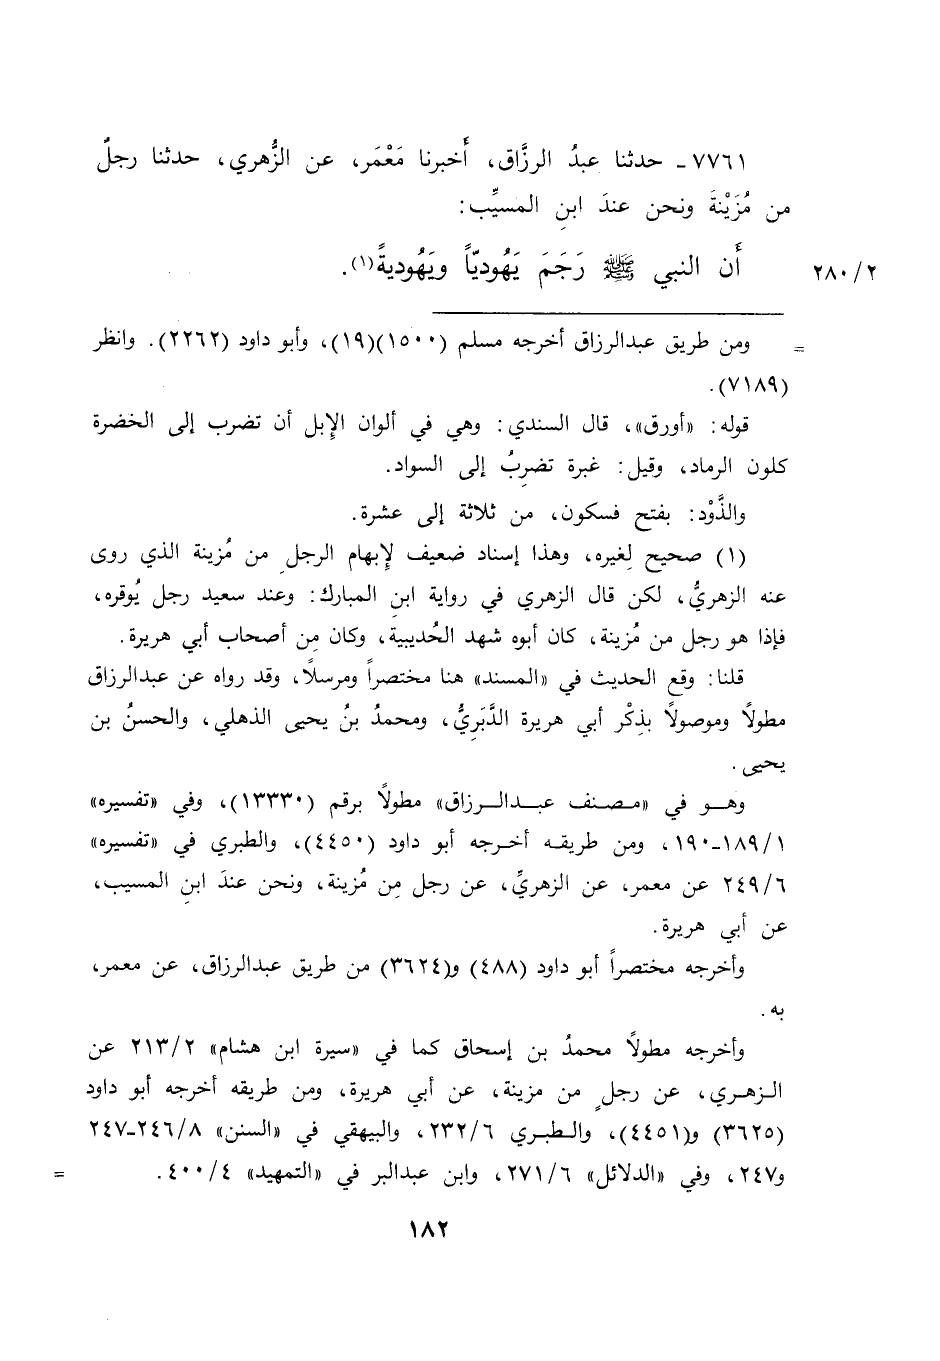 ٧٧٦١ - حدثنا عبدُ الرزَّاق، أَخبرنا مَعْمَر، عن الزُّهري، حدثنا رجلٌ
من مُزَيْنةَ ونحن عندَ ابنِ المسيِّب:
أَن النبي ﷺ رَجَمَ يَهُوديّاً ويَهُوديةً(١).
٢٨٠/٢
= ومن طريق عبدالرزاق أخرجه مسلم (١٥٠٠)(١٩)، وأبو داود (٢٢٦٢). وانظر
(٧١٨٩).
قوله: «أورق»، قال السندي: وهي في ألوان الإبل أن تضرب إلى الخضرة
كلون الرماد، وقيل: غبرة تضربُ إلى السواد.
والذَّوْد: بفتح فسكون، من ثلاثة إلى عشرة.
(١) صحيح لغيره، وهذا إسناد ضعيف لإبهام الرجل من مُزينة الذي روى
عنه الزهريُّ، لكن قال الزهري في رواية ابنِ المبارك: وعند سعيد رجل يُوقره،
فإذا هو رجل من مُزينة، كان أبوه شهد الحُديبية، وكان مِن أصحاب أبي هريرة.
قلنا: وقع الحديث في «المسند» هنا مختصراً ومرسلًا، وقد رواه عن عبدالرزاق
مطولًا وموصولًا بذِكْر أبي هريرة الدَّبَرِيُّ، ومحمدُ بنُ يحيى الذهلي، والحسنُ بن
يحيى.
وهو في «مصنف عبدالرزاق» مطولًا برقم (١٣٣٣٠)، وفي «تفسيره»
١٨٩/١-١٩٠، ومن طريقه أخرجه أبو داود (٤٤٥٠)، والطبري في «تفسيره»
٢٤٩/٦ عن معمر، عن الزهريِّ، عن رجل مِن مُزينة، ونحن عندَ ابنِ المسيب،
عن أبي هريرة.
وأخرجه مختصراً أبو داود (٤٨٨) و(٣٦٢٤) من طريق عبدالرزاق، عن معمر،
به.
وأخرجه مطولًا محمدُ بن إسحاق كما في «سيرة ابن هشام» ٢١٣/٢ عن
الزهري، عن رجلٍ من مزينة، عن أبي هريرة، ومن طريقه أخرجه أبو داود
(٣٦٢٥) و(٤٤٥١)، والطبري ٢٣٢/٦، والبيهقي في «السنن» ٢٤٦/٨-٢٤٧
و٢٤٧، وفي «الدلائل» ٢٧١/٦، وابن عبدالبر في «التمهيد» ٤٠٠/٤. =
١٨٢